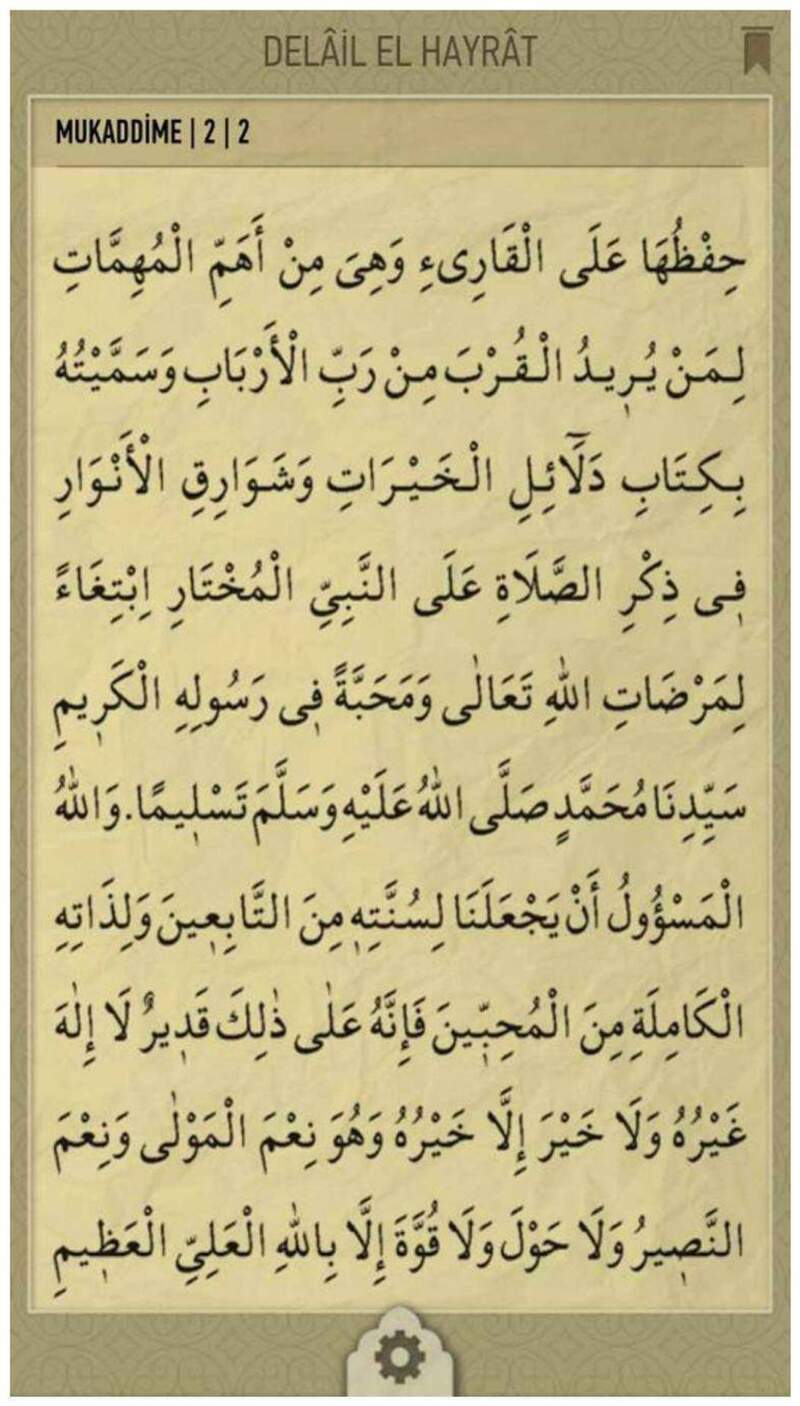 DELÂİL EL HAYRÂT
MUKADDİME | 2 | 2
حِفْظُهَا عَلَى الْقَارِىءِ وَهِىَ مِنْ أَهَمِّ الْمُهِمَّاتِ
لِمَنْ يُرِيدُ الْقُرْبَ مِنْ رَبِّ الْأَرْبَابِ وَسَمَّيْتُهُ
بِكِتَابِ دَلَٓائِلِ الْخَيْرَاتِ وَشَوَارِقِ الْأَنْوَارِ
فِى ذِكْرِ الصَّلَاةِ عَلَى النَّبِيِّ الْمُخْتَارِ اِبْتِغَاءً
لِمَرْضَاتِ اللهِ تَعَالٰى وَمَحَبَّةً فِى رَسُولِهِ الْكَرِيمِ
سَيِّدِنَا مُحَمَّدٍ صَلَّى اللهُ عَلَيْهِ وَسَلَّمَ تَسْلِيمًا. وَاللهُ
الْمَسْؤُولُ أَنْ يَجْعَلَنَا لِسُنَّتِهِ مِنَ التَّابِعِينَ وَلِذَاتِهِ
الْكَامِلَةِ مِنَ الْمُحِبِّينَ فَإِنَّهُ عَلٰى ذٰلِكَ قَدِيرٌ لَا إِلٰهَ
غَيْرُهُ وَلَا خَيْرَ إِلَّا خَيْرُهُ وَهُوَ نِعْمَ الْمَوْلٰى وَنِعْمَ
النَّصِيرُ وَلَا حَوْلَ وَلَا قُوَّةَ إِلَّا بِاللهِ الْعَلِيِّ الْعَظِيمِ